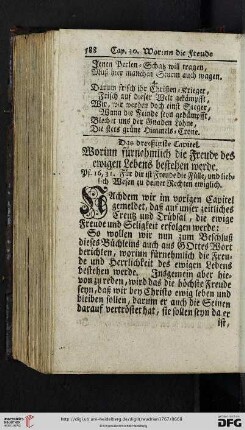 188 Cap. 30. Worinn die Freude
Jenen Perlen-Schatz will tragen,
Muß hier manchen Sturm auch wagen.
4.
Darum frisch ihr Christen-Krieger,
Frisch auf dieser Welt gekämpft,
Wir, wir werden doch einst Sieger,
Wann die Feinde seyn gedämpft,
Bleibet uns der Gnaden Lohne,
Die stets grüne Himmels-Crone.
Das dreyßigste Capitel.
Worinn fürnehmlich die Freude des
ewigen Lebens bestehen werde.
Ps. 16, 11. Für dir ist Freude die Fülle, und lieb-
lich Wesen zu deiner Rechten ewiglich.
NAchdem wir im vorigen Capitel
gemeldet, daß auf unser zeitliches
Creutz und Trübsal, die ewige
Freude und Seligkeit erfolgen werde:
So wollen wir nun zum Beschluß
dieses Büchleins auch aus GOttes Wort
berichten, worinn fürnehmlich die Freu-
de und Herrlichkeit des ewigen Lebens
bestehen werde. Insgemein aber hie-
von zu reden, wird das die höchste Freude
seyn, daß wir bey Christo ewig leben und
bleiben sollen, darum er auch die Seinen
darauf vertröstet hat, sie sollen seyn da er
ist,